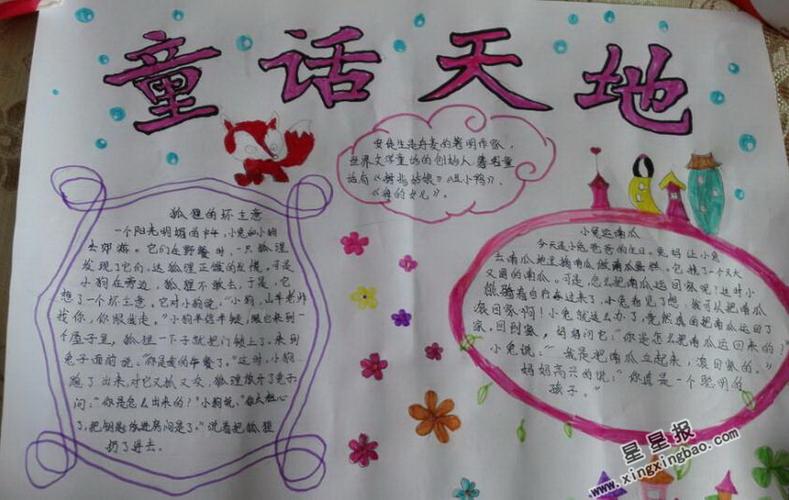 童话天地
安徒生是丹麦的著明作家，
世界文学童话的创始人
《拇指姑娘》《丑小鸭》、
《海的女儿》。
狐狸的坏主意
一个阳光明媚的中午，小兔和小狗
去郊游。它们在野餐时，一只狐狸
发现了它们，这狐狸正饿的发慌。可是
小狗在旁边，狐狸不敢去，于是，它
想了一个坏主意，它对小狗说：“小狗，山羊老师
找你，你跟我走。”小狗半信半疑，跟它来到一
个屋子里，狐狸一下子就把门锁上了，来到
兔子面前说：“你是我的午餐了。”这时，小狗
跑了出来，对它又抓又咬，狐狸放开了兔子
问：“你是怎么出来的？”小狗说：“你太粗心
了，把钥匙放进房间是了。”说着把狐狸
扔了出去。
小兔运南瓜
今天是小兔爸爸的生日。兔妈让小兔
去南瓜地里摘南瓜做南瓜蛋糕。它摘了一个又大
又圆的南瓜。可是，怎么把南瓜运回家呢！这时小
熊骑着自行车过来了，小兔看见了想：我可以把南瓜
滚回家啊！小兔就这么办了，竟然真的把南瓜运回了
家，回到家，妈妈问它：“你是怎么把南瓜运回来的？”
小兔说：“我是把南瓜立起来，滚回家的。”
妈妈高兴的说：“你真是一个聪明的
孩子。”
星星报
www.xingxingbao.com